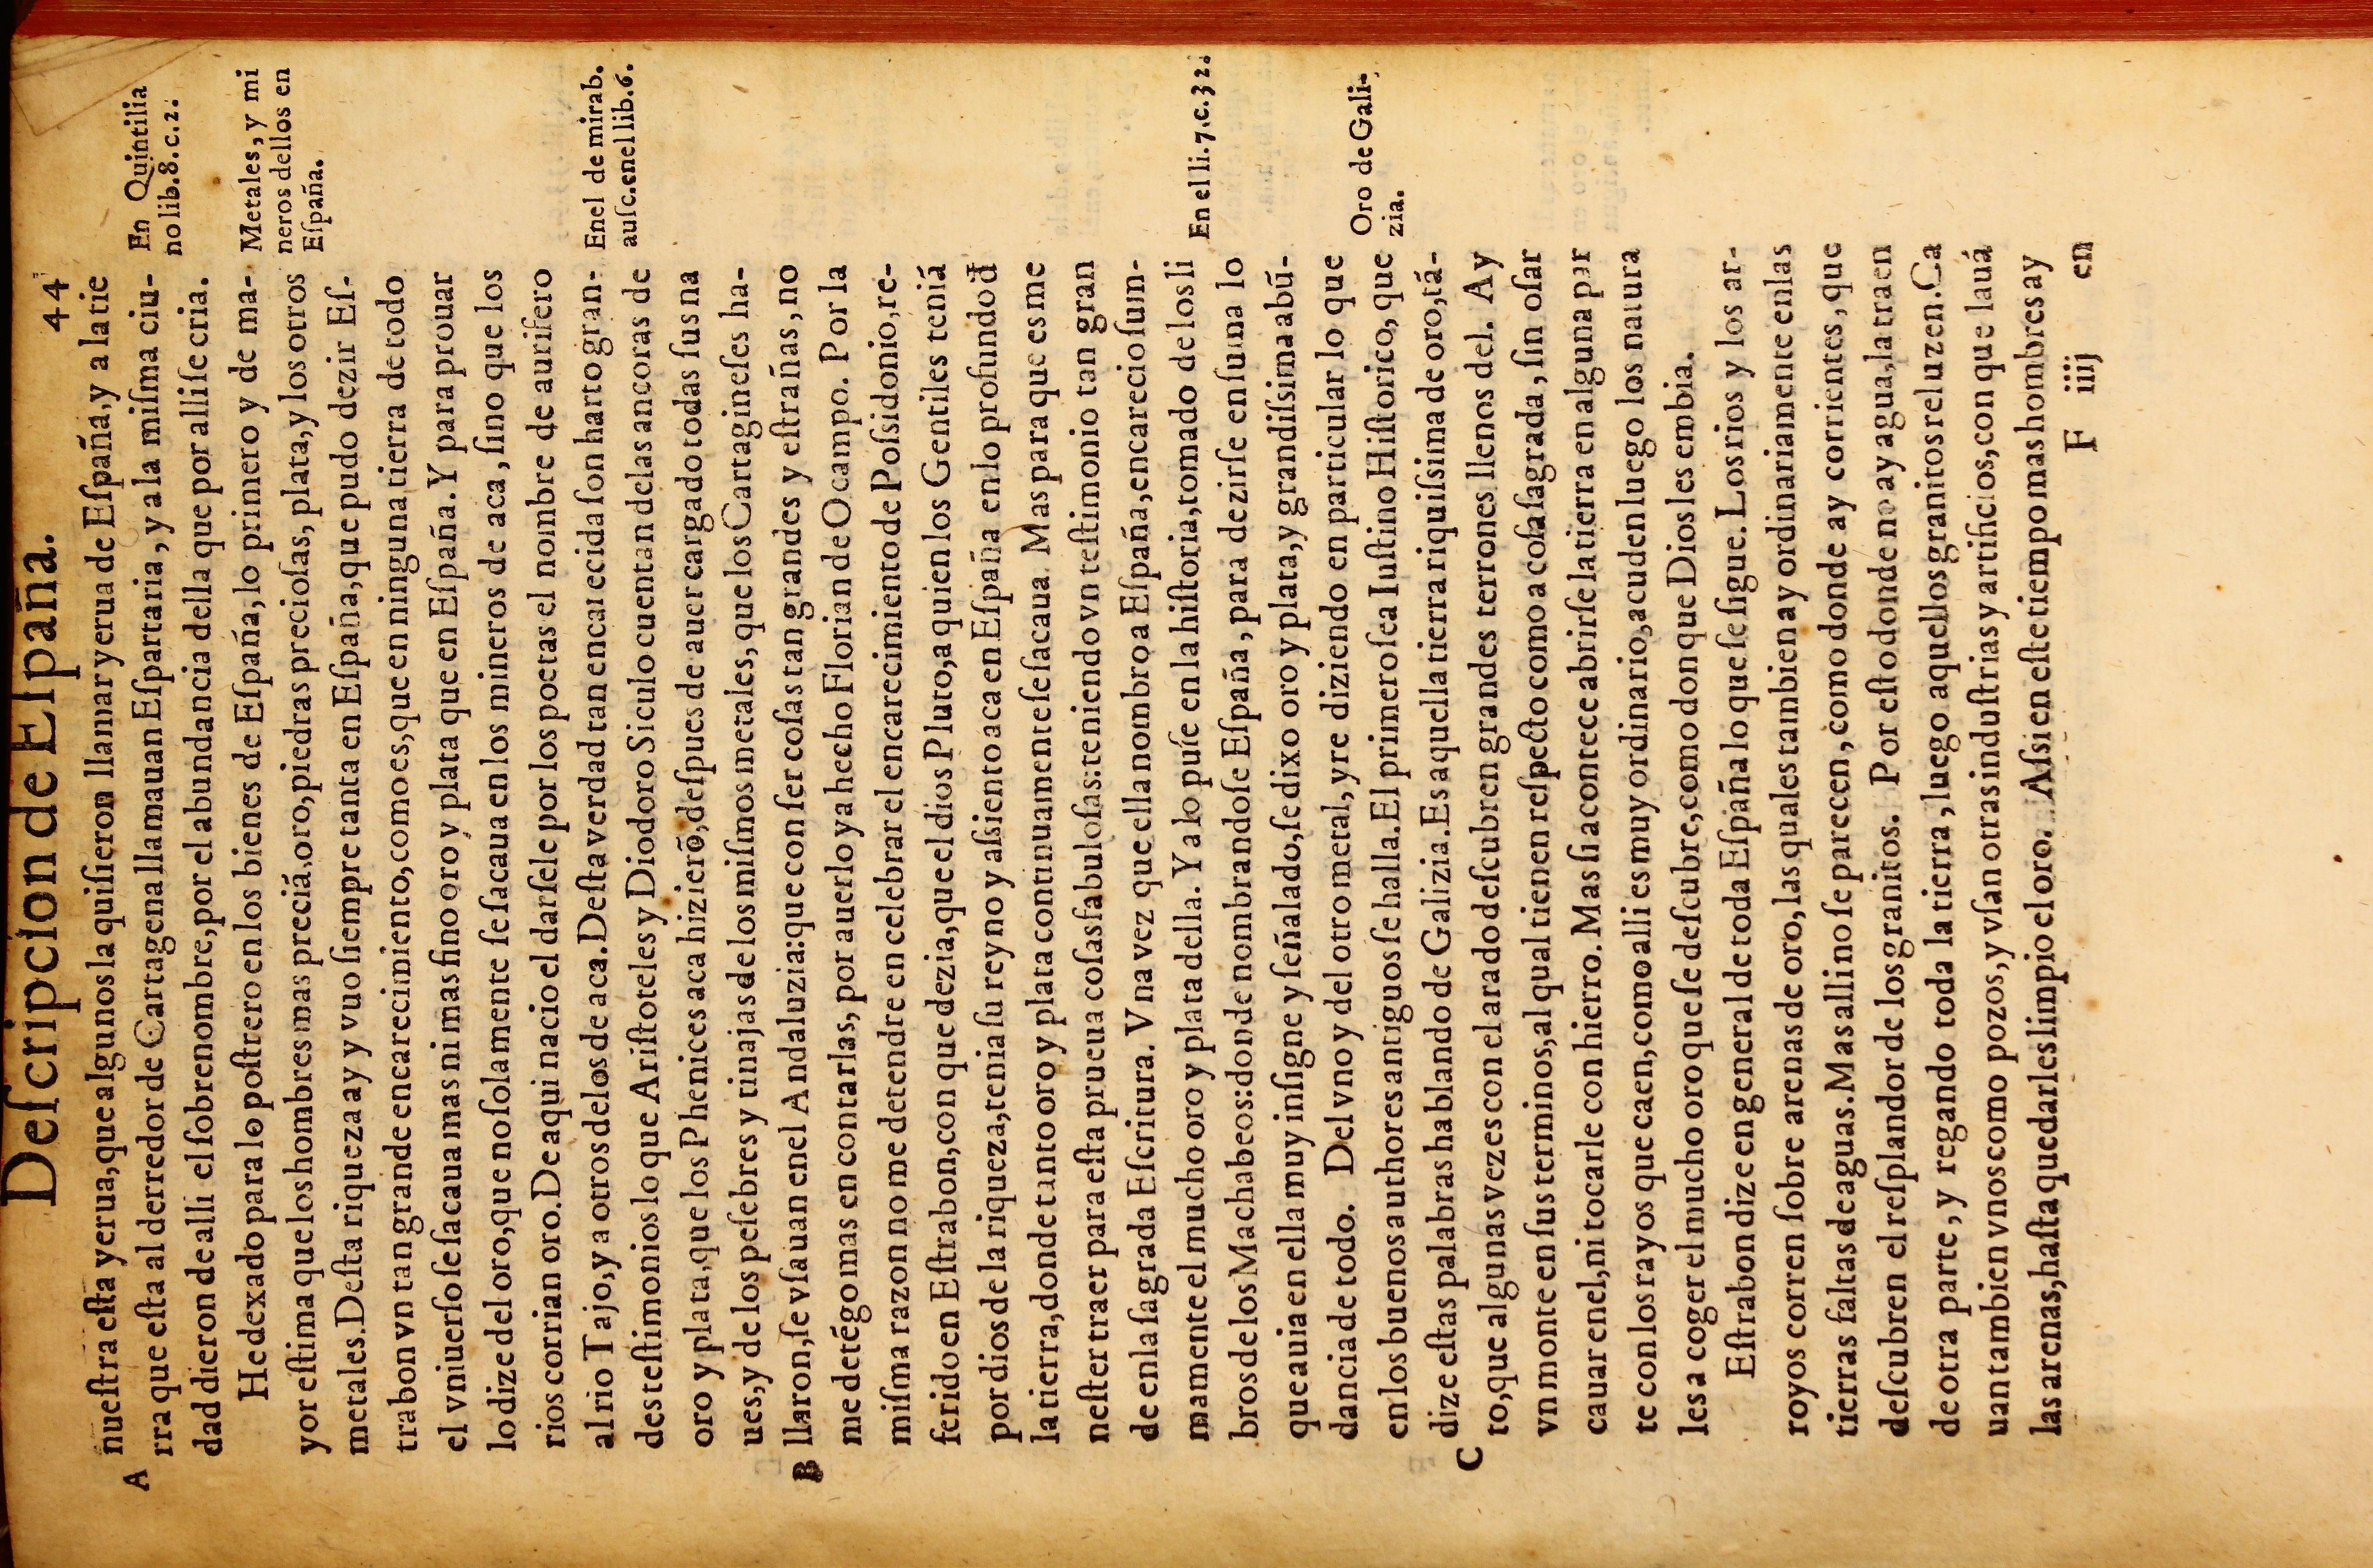 Deſcripcion de Eſpaña. 44
A nueſtra eſta yerua, que algunos la quiſieron llamar yerua de Eſpaña, y a la tie
rra que eſta al derredor de Cartagena llamauan Eſpartaria, y a la miſma ciu-
dad dieron de alli el ſobrenombre, por el abundancia della que por alli ſe cria.
En Quintilia
no lib. 8. c. 2.
He dexado para lo poſtrero en los bienes de Eſpaña, lo primero y de ma-
yor eſtima que los hombres mas preciá, oro, piedras precioſas, plata, y los otros
metales. Deſta riqueza ay y vuo ſiempre tanta en Eſpaña, que pudo dezir Eſ-
Metales, y mi
neros dellos en
Eſpaña.
trabon vn tan grande encarecimiento, como es, que en ninguna tierra de todo
el vniuerſo ſe ſacaua mas ni mas fino oro y plata que en Eſpaña. Y para prouar
lo dize del oro, que no ſolamente ſe ſacaua en los mineros de aca, ſino que los
rios corrian oro. De aqui nacio el darſele por los poetas el nombre de aurifero
al rio Tajo, y a otros de los de aca. Deſta verdad tan encarecida ſon harto gran-
des teſtimonios lo que Ariſtoteles y Diodoro Siculo cuentan de las ancoras de
En el de mirab.
auſc. en el lib. 6.
oro y plata, que los Phenices aca hizierō, deſpues de auer cargado todas ſus na
ues, y de los peſebres y tinajas de los miſmos metales, que los Cartagineſes ha-
B llaron, ſe vſauan en el Andaluzia: que con ſer coſas tan grandes y eſtrañas, no
me detégo mas en contarlas, por auerlo ya hecho Florian de Ocampo. Por la
miſma razon no me detendre en celebrar el encarecimiento de Poſsidonio, re-
ferido en Eſtrabon, con que dezia, que el dios Pluto, a quien los Gentiles teniá
por dios de la riqueza, tenia ſu reyno y aſsiento aca en Eſpaña en lo profundo đ
la tierra, donde tanto oro y plata continuamente ſe ſacaua. Mas para que es me
neſter traer para eſta prueua coſas fabuloſas: teniendo vn teſtimonio tan gran
de en la ſagrada Eſcritura. Vna vez que ella nombro a Eſpaña, encarecio ſum-
mamente el mucho oro y plata della. Ya lo puſe en la hiſtoria, tomado de los li
En el li. 7. c. 32.
bros de los Machabeos: donde nombrandoſe Eſpaña, para dezirſe en ſuma lo
que auia en ella muy inſigne y ſeñalado, ſe dixo oro y plata, y grandiſsima abū-
dancia de todo. Del vno y del otro metal, yre diziendo en particular lo que
en los buenos authores antiguos ſe halla. El primero ſea Iuſtino Hiſtorico, que
Oro de Gali-
zia.
dize eſtas palabras hablando de Galizia. Es aquella tierra riquiſsima de oro, tá-
C to, que algunas vezes con el arado deſcubren grandes terrones llenos del. Ay
vn monte en ſus terminos, al qual tienen reſpecto como a coſa ſagrada, ſin oſar
cauar en el, ni tocarle con hierro. Mas ſi acontece abrirſe la tierra en alguna par
te con los rayos que caen, como alli es muy ordinario, acuden luego los natura
les a coger el mucho oro que ſe deſcubre, como don que Dios les embia.
Eſtrabon dize en general de toda Eſpaña lo que ſe ſigue. Los rios y los ar-
royos corren ſobre arenas de oro, las quales tambien ay ordinariamente en las
tierras faltas de aguas. Mas alli no ſe parecen, como donde ay corrientes, que
deſcubren el reſplandor de los granitos. Por eſto donde no ay agua, la traen
de otra parte, y regando toda la tierra, luego aquellos granitos reluzen. Ca
uan tambien vnos como pozos, y vſan otras induſtrias y artificios, con que lauá
las arenas, haſta quedarles limpio el oro. Aſsi en eſte tiempo mas hombres ay
F iiij en